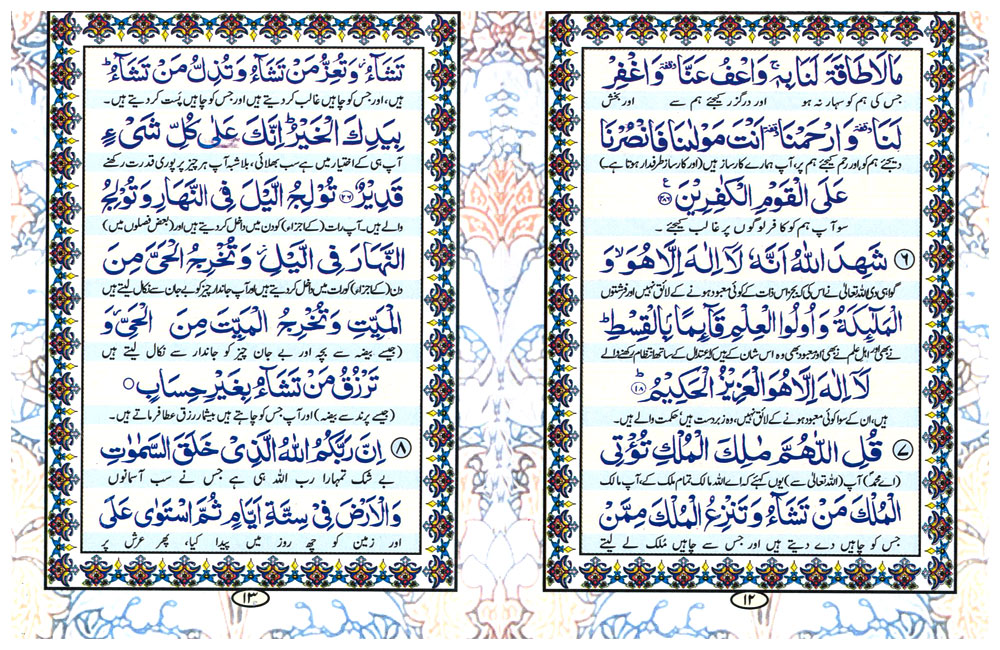 مَا لَا طَاقَةَ لَنَا بِهٖ ۚ وَاعْفُ عَنَّا ۥ وقفة وَاغْفِرْ
جس کی ہم کو سہار نہ ہو اور درگزر کیجئے ہم سے اور بخش
لَنَا ۥ وقفة وَارْحَمْنَا ۥ وقفة اَنْتَ مَوْلٰىنَا فَانْصُرْنَا
دیجئے ہم کو اور رحم کیجئے ہم پر، آپ ہمارے کارساز ہیں (اور کارساز طرفدار ہوتا ہے)
عَلَى الْقَوْمِ الْكٰفِرِيْنَ ۧ ﴿۲۸۶﴾
سو آپ ہم کو کافر لوگوں پر غالب کیجئے ۔
۶ شَهِدَ اللّٰهُ اَنَّهٗ لَاۤ اِلٰهَ اِلَّا هُوَ ۙ وَ
گواہی دی اللہ تعالیٰ نے اس کی کہ بجز اس ذات کے کوئی معبود ہونے کے لائق نہیں اور فرشتوں
الْمَلٰٓئِكَةُ وَاُولُوا الْعِلْمِ قَآئِمًۢا بِالْقِسْطِ ؕ
نے بھی اور اہل علم نے بھی اور معبود بھی وہ اس شان کے ہیں کہ اعتدال کے ساتھ انتظام رکھنے والے
لَاۤ اِلٰهَ اِلَّا هُوَ الْعَزِيْزُ الْحَكِيْمُ ؕ ﴿۱۸﴾
ہیں، ان کے سوا کوئی معبود ہونے کے لائق نہیں، وہ زبردست ہیں حکمت والے ہیں۔
۷ قُلِ اللّٰهُمَّ مٰلِكَ الْمُلْكِ تُؤْتِى
(اے محمدؐ) آپ (اللہ تعالیٰ سے) یوں کہئے کہ اے اللہ مالک تمام ملک کے آپ مالک
الْمُلْكَ مَنْ تَشَآءُ وَتَنْزِعُ الْمُلْكَ مِمَّنْ
جس کو چاہیں دے دیتے ہیں اور جس سے چاہیں مُلک لے لیتے
۱۲
تَشَآءُ ۡ وَتُعِزُّ مَنْ تَشَآءُ وَتُذِلُّ مَنْ تَشَآءُ ؕ
ہیں، اور جس کو چاہیں غالب کر دیتے ہیں اور جس کو چاہیں پست کر دیتے ہیں۔
بِيَدِكَ الْخَيْرُ ؕ اِنَّكَ عَلٰى كُلِّ شَىْءٍ
آپ ہی کے اختیار میں ہے سب بھلائی، بلاشبہ آپ ہر چیز پر پوری قدرت رکھنے
قَدِيْرٌ ﴿۲۶﴾ تُوْلِجُ الَّيْلَ فِى النَّهَارِ وَتُوْلِجُ
والے ہیں۔ آپ رات (کے اجزاء) کو دن میں داخل کر دیتے ہیں اور (بعض فصلوں میں)
النَّهَارَ فِى الَّيْلِ ۡ وَتُخْرِجُ الْحَىَّ مِنَ
دن (کے اجزاء) کو رات میں داخل کر دیتے ہیں اور آپ جاندار چیز کو بے جان سے نکال لیتے ہیں
الْمَيِّتِ وَتُخْرِجُ الْمَيِّتَ مِنَ الْحَىِّ ۡ وَ
(جیسے بیضہ سے بچہ) اور بے جان چیز کو جاندار سے نکال لیتے ہیں
تَرْزُقُ مَنْ تَشَآءُ بِغَيْرِ حِسَابٍ ○
(جیسے پرند سے بیضہ) اور آپ جس کو چاہتے ہیں بیشمار رزق عطا فرماتے ہیں۔
۸ اِنَّ رَبَّكُمُ اللّٰهُ الَّذِىْ خَلَقَ السَّمٰوٰتِ
بے شک تمہارا رب اللہ ہی ہے جس نے سب آسمانوں
وَالْاَرْضَ فِىْ سِتَّةِ اَيَّامٍ ثُمَّ اسْتَوٰى عَلَى
اور زمین کو چھ روز میں پیدا کیا، پھر عرش پر
۱۳